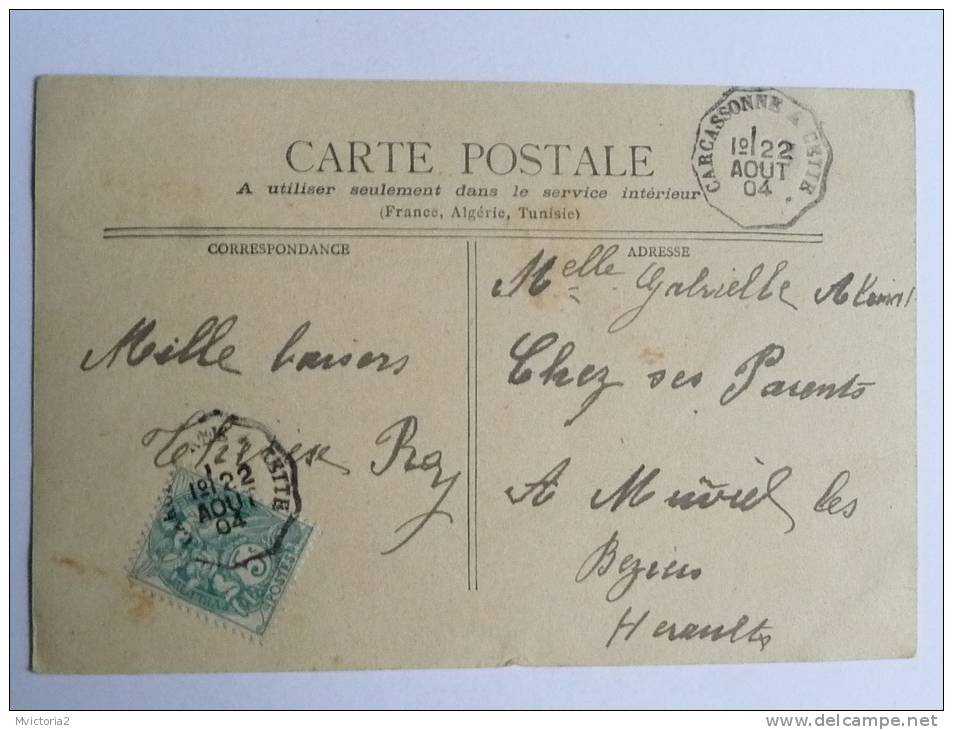 CARTE POSTALE
A utiliser seulement dans le service intérieur
(France, Algérie, Tunisie)
CARCASSONNE A CETTE
22
AOUT
04
CORRESPONDANCE
Mille baisers
Thérèse Rey
22
AOUT
04
POSTES
ADRESSE
Melle Gabrielle
Chez ses Parents
A Murviel les
Beziers
Herault
Mvictoria2
www.delcampe.net